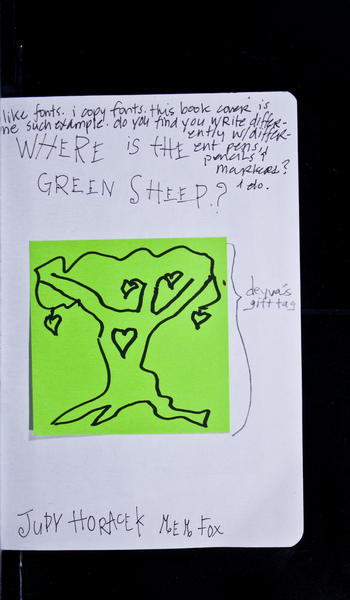 like fonts. i copy fonts. this book cover is
ne such example. do you find you write differ-
ently w/differ-
WHERE IS THE
ent pens,
pencils &
markers?
i do.
GREEN SHEEP?
deyva's
gift tag
JUDY HORACEK MEM FOX